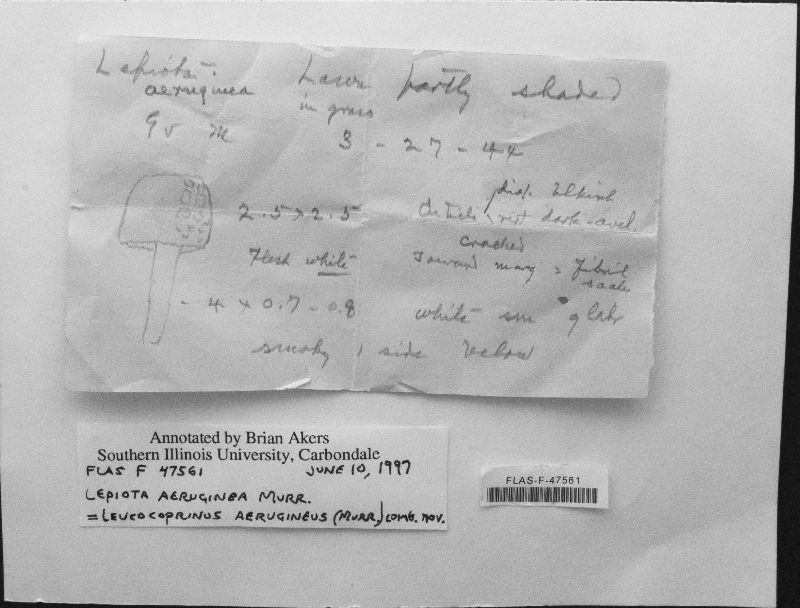 Lepiota
aeruginea
Lawn partly shaded
in grass
Gv M
3 - 27 - 44
2.5 x 2.5
disk blkish
Cuticle, rest dark-avel,
cracked
Toward marg = fibril
scales
Flesh white
- 4 x 0.7 - 0.8
white sm glabr
smoky 1 side below
Annotated by Brian Akers
Southern Illinois University, Carbondale
FLAS F 47561 JUNE 10, 1997
LEPIOTA AERUGINEA MURR.
= LEUCOCOPRINUS AERUGINEUS (MURR.) COMB. NOV.
FLAS-F-47561